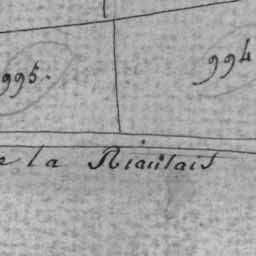 995.
994
e la Riaulais